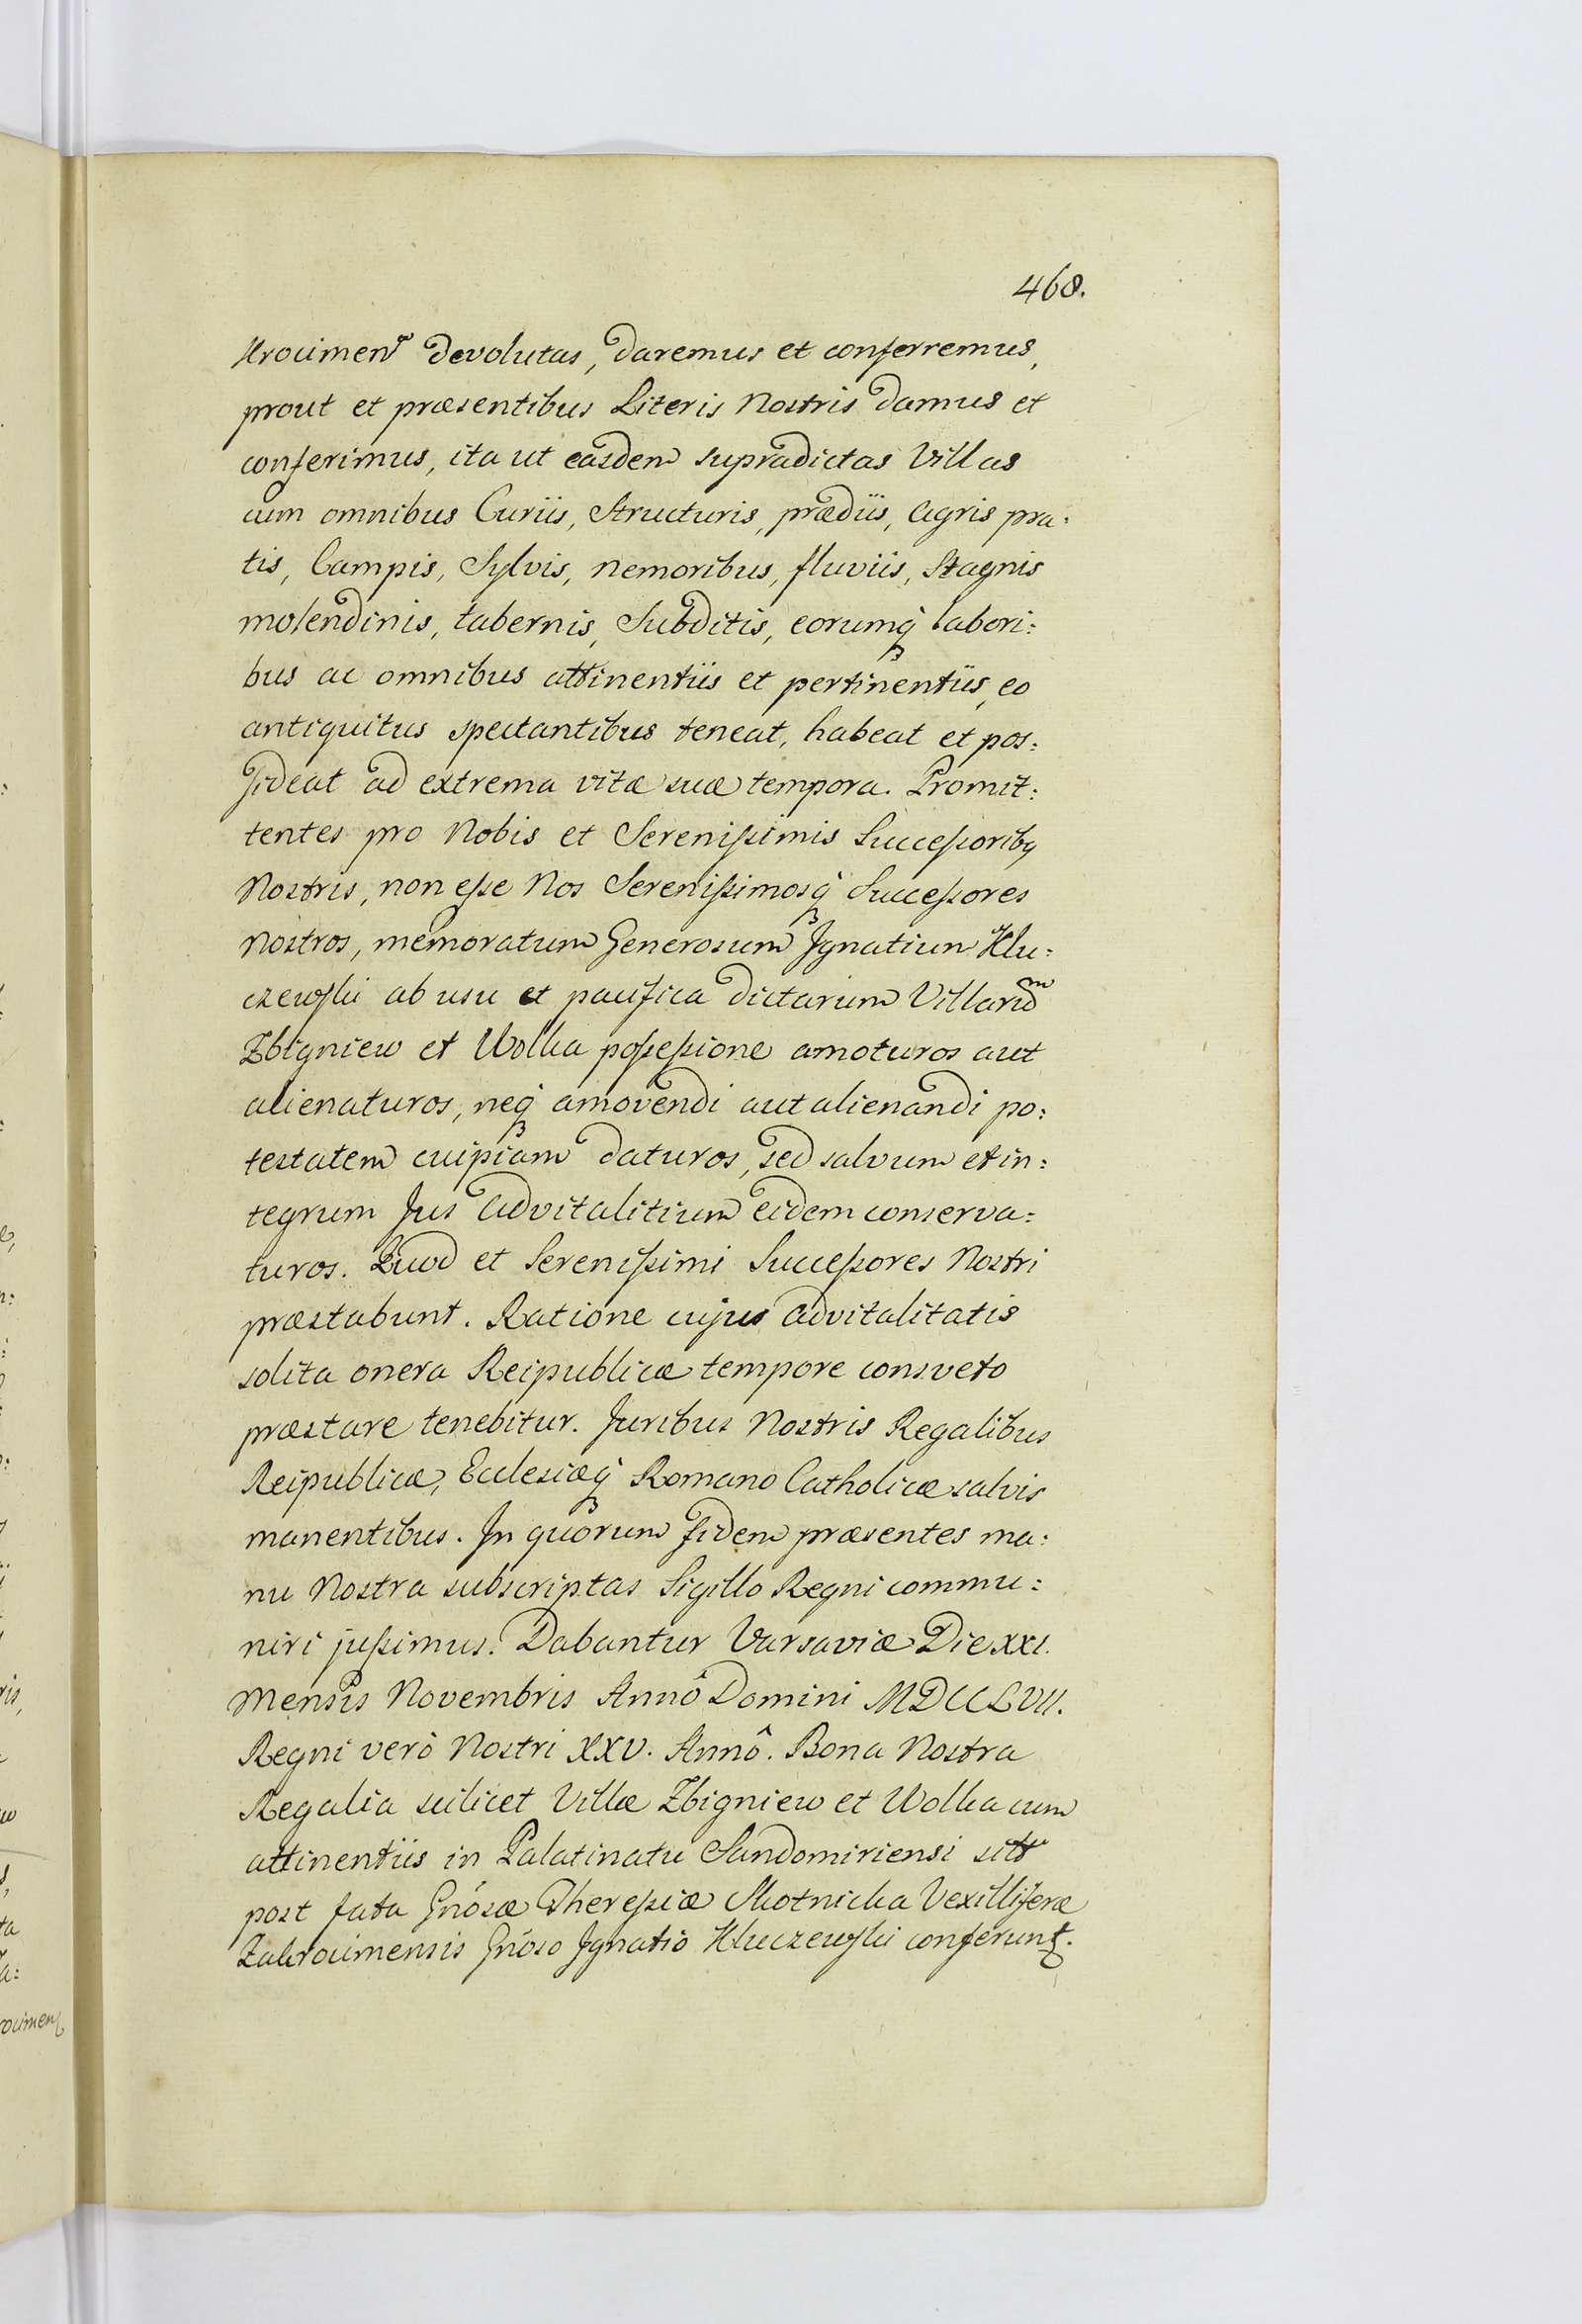 468.
krocimen devolutas, daremus et conferremus,
prout et præsentibus Literis Nostris damus et
conferimus, ita ut easdem supradictas Villas
cum omnibus Curiis, Structuris, prædiis, Agris pra:
tis, Campis, Sylvis, nemoribus, fluviis, Stagnis
molendinis, tabernis, Subditis, eorumq́ labori:
bus ac omnibus attinentiis et pertinentiis, eo
antiquitus spectantibus teneat, habeat et pos:
sideat ad extrema vitæ suæ tempora. Promit:
tentes pro Nobis et Serenißimis Succeßoribq
Nostris, non eße Nos Serenißimosq́ Succeßores
Nostros, memoratum Generosum Ignatium Klu:
czewski ab usu et pacifica dictarum Villarum
Zbigniew et Wolka poßeßione amoturos aut
alienaturos, neq́ amovendi aut alienandi po:
testatem cuipiam daturos, sed salvum et in:
tegrum Jus Advitalitium eidem conserva:
turos. Quod et Serenißimi Succeßores Nostri
præstabunt. Ratione cujus Advitalitatis
solita onera Reipublicæ tempore consveto
præstare tenebitur. Juribus Nostris Regalibus
Reipublicæ, Ecclesiæq́ Romano Catholicæ salvis
manentibus. In quorum fidem præsentes ma:
nu Nostra subscriptas Sigillo Regni commu:
niri jußimus. Dabantur Varsaviæ Die XXI.
Mensis Novembris Annô Domini MDCCLVII.
Regni verò Nostri XXV. Annô. Bona Nostra
Regalia scilicet Villæ Zbigniew et Wolka cum
attinentiis in Palatinatu Sandomiriensi sitt
post fata Gńosæ Thereßiæ Skotnicka Vexilliferæ
Zakrocimensis Gńoso Ignatio Kluczewski conferunt.